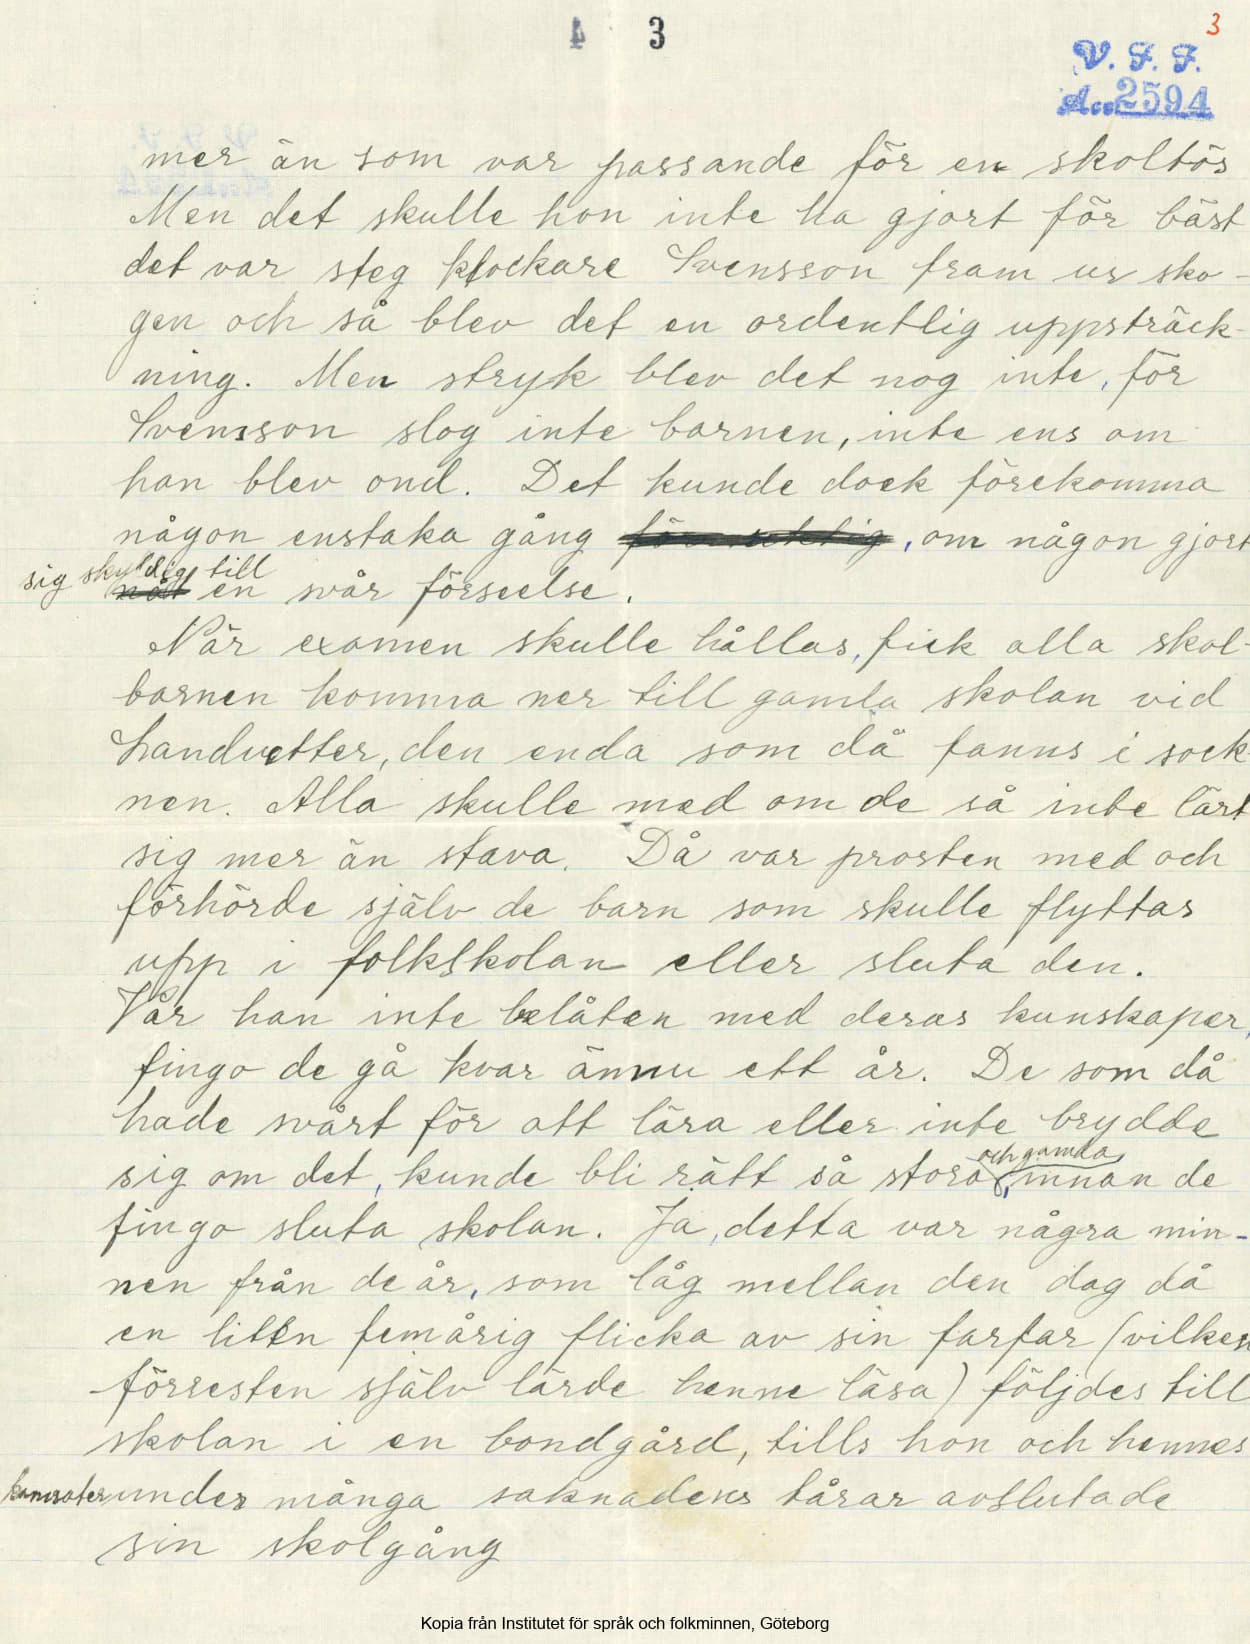 4 3
3
V. F. F.
Acc 2594
mer än som var passande för en skoltös
Men det skulle hon inte ha gjort för bäst
det var steg klockare Svensson fram ur sko-
gen och så blev det en ordentlig uppsträck-
ning. Men stryk blev det nog inte, för
Svensson slog inte barnen, inte ens om
han blev ond. Det kunde dock förekomma
någon enstaka gång , om någon gjort
sig skyldig till
en svår förseelse.
När examen skulle hållas, fick alla skol-
barnen komma ner till gamla skolan vid
Landvetter, den enda som då fanns i sock-
nen. Alla skulle med om de så inte lärt
sig mer än stava. Då var prosten med och
förhörde själv de barn som skulle flyttas
upp i folkskolan eller sluta den.
Var han inte belåten med deras kunskaper,
fingo de gå kvar ännu ett år. De som då
hade svårt för att lära eller inte brydde
sig om det, kunde bli rätt så stora och gamla, innan de
fingo sluta skolan. Ja, detta var några min-
nen från de år, som låg mellan den dag då
en liten femårig flicka av sin farfar (vilken
förresten själv lärde henne läsa) följdes till
skolan i en bondgård, tills hon och hennes
kamrater under många saknadens tårar avslutade
sin skolgång
Kopia från Institutet för språk och folkminnen, Göteborg